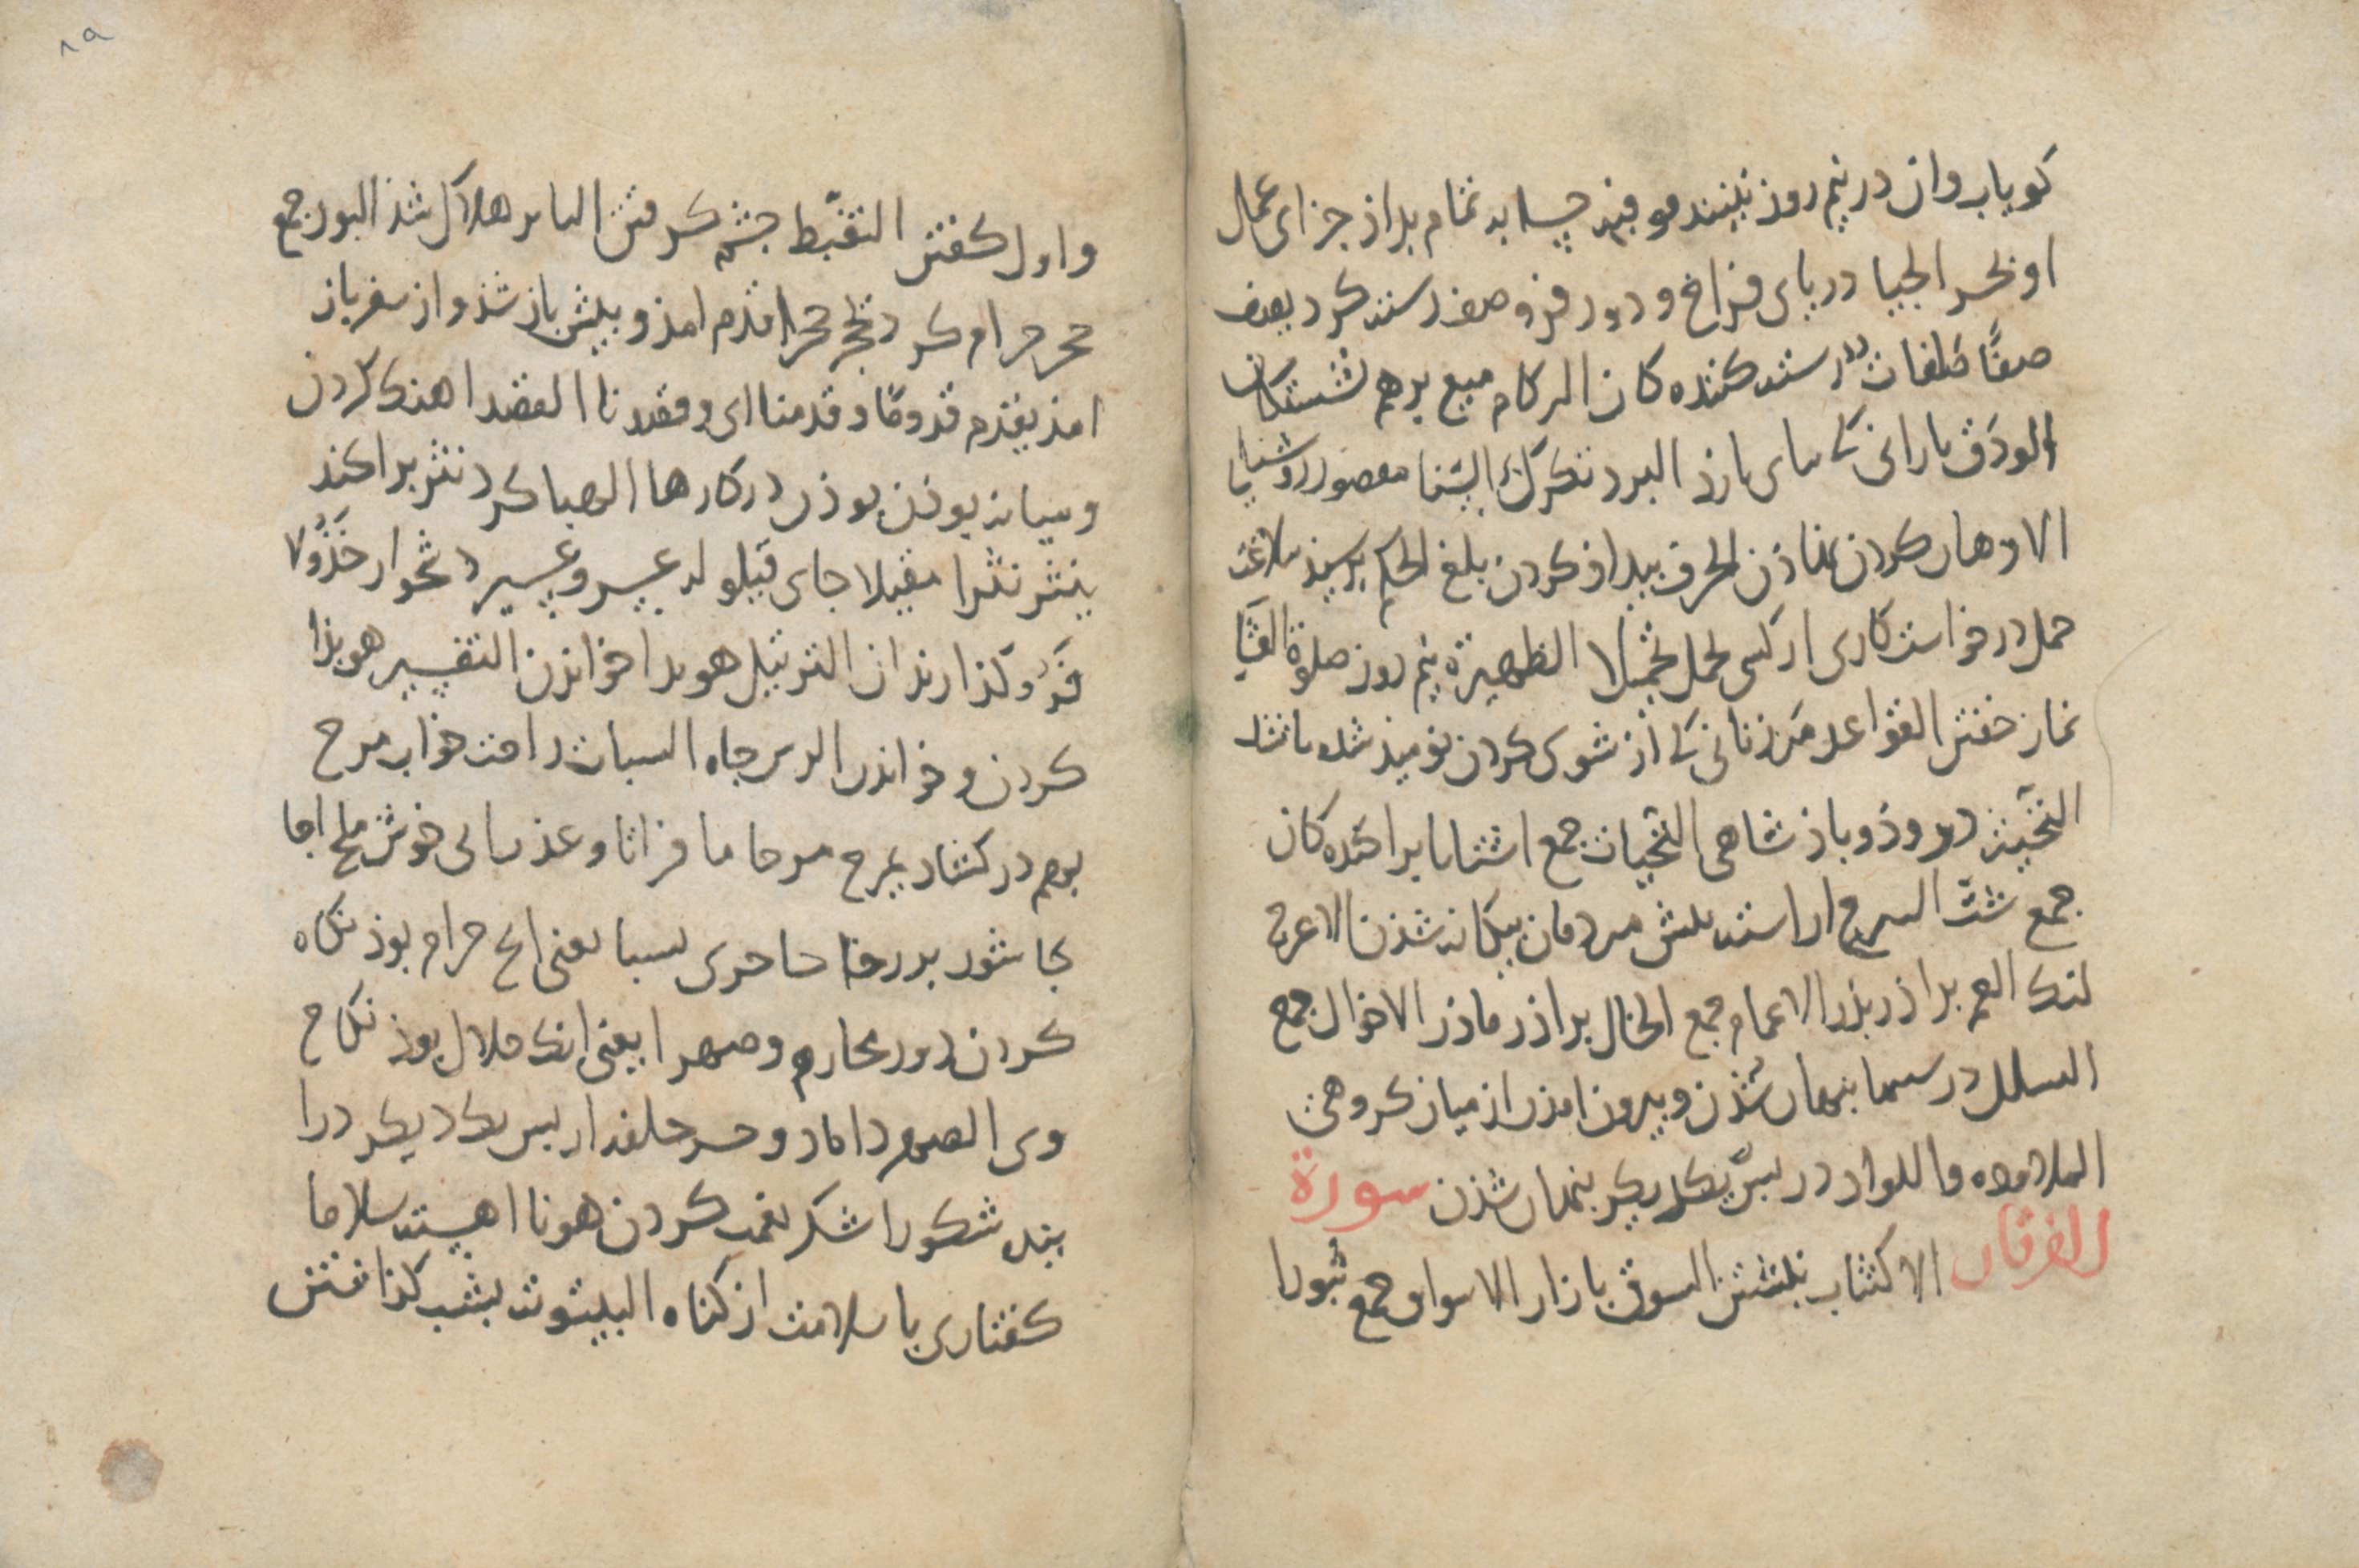 کویاب وان در نیم روز بینند موفیه حسابه تمام بداذ جزای عمال
او بحر الجیا دریای فراخ و دور فرو صف رسته کرد یصف
صفا صافات رسته کننده کان الرکام میع برهم نشستکان
الودق بارانی کی بازد البرد تکرک السنا مقصور روشنایی
الاوهار کردن نماذن الحرف بیداذ کردن بلغ الحلم برسید بلاغت
حمل درخواست کاری از کسی یحمل تحمیلا الظهیرة نیم روز صلوة العشا
نماز خفتن القواعد زنانی کی از شوی کردن نومیذ شده باشند
التحیة دروذ و باذشاهی التحیات جمع اشتاتا براکنده کان
جمع شت التبرج اراسته بیش مردمان بیکانه شذن الاعرج
لنک العم براذر بذر الاعمام جمع الخال براذر ماذر الاخوال جمع
التسلل در بنهان شذن و بیرون امذن از میان کروهی
الملاوذه واللواذ در بس یکدیکر بنهان شذن سورة
الفرقان الاکتتاب نبشتن السوق بازار الاسواق جمع ثبورا
۸۹
واویل کفتن التغیظ خشم کرفتن البایر هلاک شذ البور جمع
حجر حرام کرد یحجر حجرا قدم امذ و بیش باز شذ و از سفر باز
امذ یقدم قدوما و قدمنا ای و قصدنا القصد اهنک کردن
و میانه بوذن بوذن در کارها الهبا کرد نثر براکند
ینثر نثرا مقیلا جای قیلوله عسر و عسیر دشخوار خذولا
فرو کذارنذان الترتیل هویدا خواندن التفسیر هویذا
کردن و خواندن الرس جاه السبات راحت خواب مرج
بهم در کشاد یمرج مرجا ما فراتا و عذب ابی خوش ملح اجا
جا شور برزخا حاجزی نسبا یعنی انج حرام بوذ نکاه
کردن در محارم و صهرا یعنی انک حلال بوذ نکاح
وی الصهر داماد و خسر خلفه از بس یکدیکر درا
ینده شکورا شکر نعمت کردن هونا اهسته سلاما
کفتاری با سلامت از کناه البیتوتة بشب کذاشتن